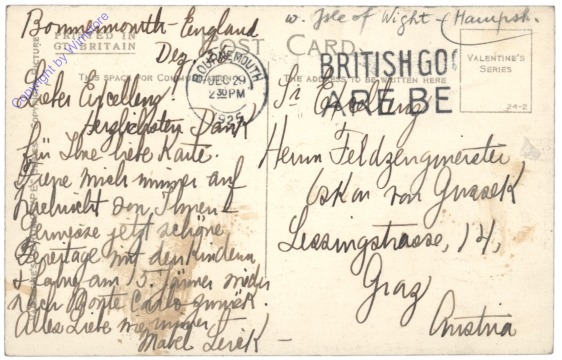 Bournemouth-England
Dez. 29.
PRINTED IN
GT. BRITAIN
THIS SPACE FOR
Lieber Excellenz.
Herzlichsten Dank
für Ihre liebe Karte.
Freue mich immer auf
Nachricht von Ihnen-
Geniesse jetzt schöne
Feiertage mit den Kindern
& fahre am 15. Jänner wieder
nach Monte Carlo zurück.
Alles Liebe wie immer
Mabel
w. Isle of Wight - (Hampsh.
POST CARD
BOURNEMOUTH
DEC 29
2 30 PM
192
BRITISH GO
ARE BE
THE ADDRESS TO BE WRITTEN HERE
VALENTINE'S
SERIES
24-2
Sr Excellenz
Herrn Feldzeugmeister
Oskar von Gussek
Lessingstrasse, 14,
Graz
Austria
Copyright by Wimcore